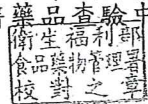 藥品查驗中
衛生福利部
食品藥物管理署
校對之章